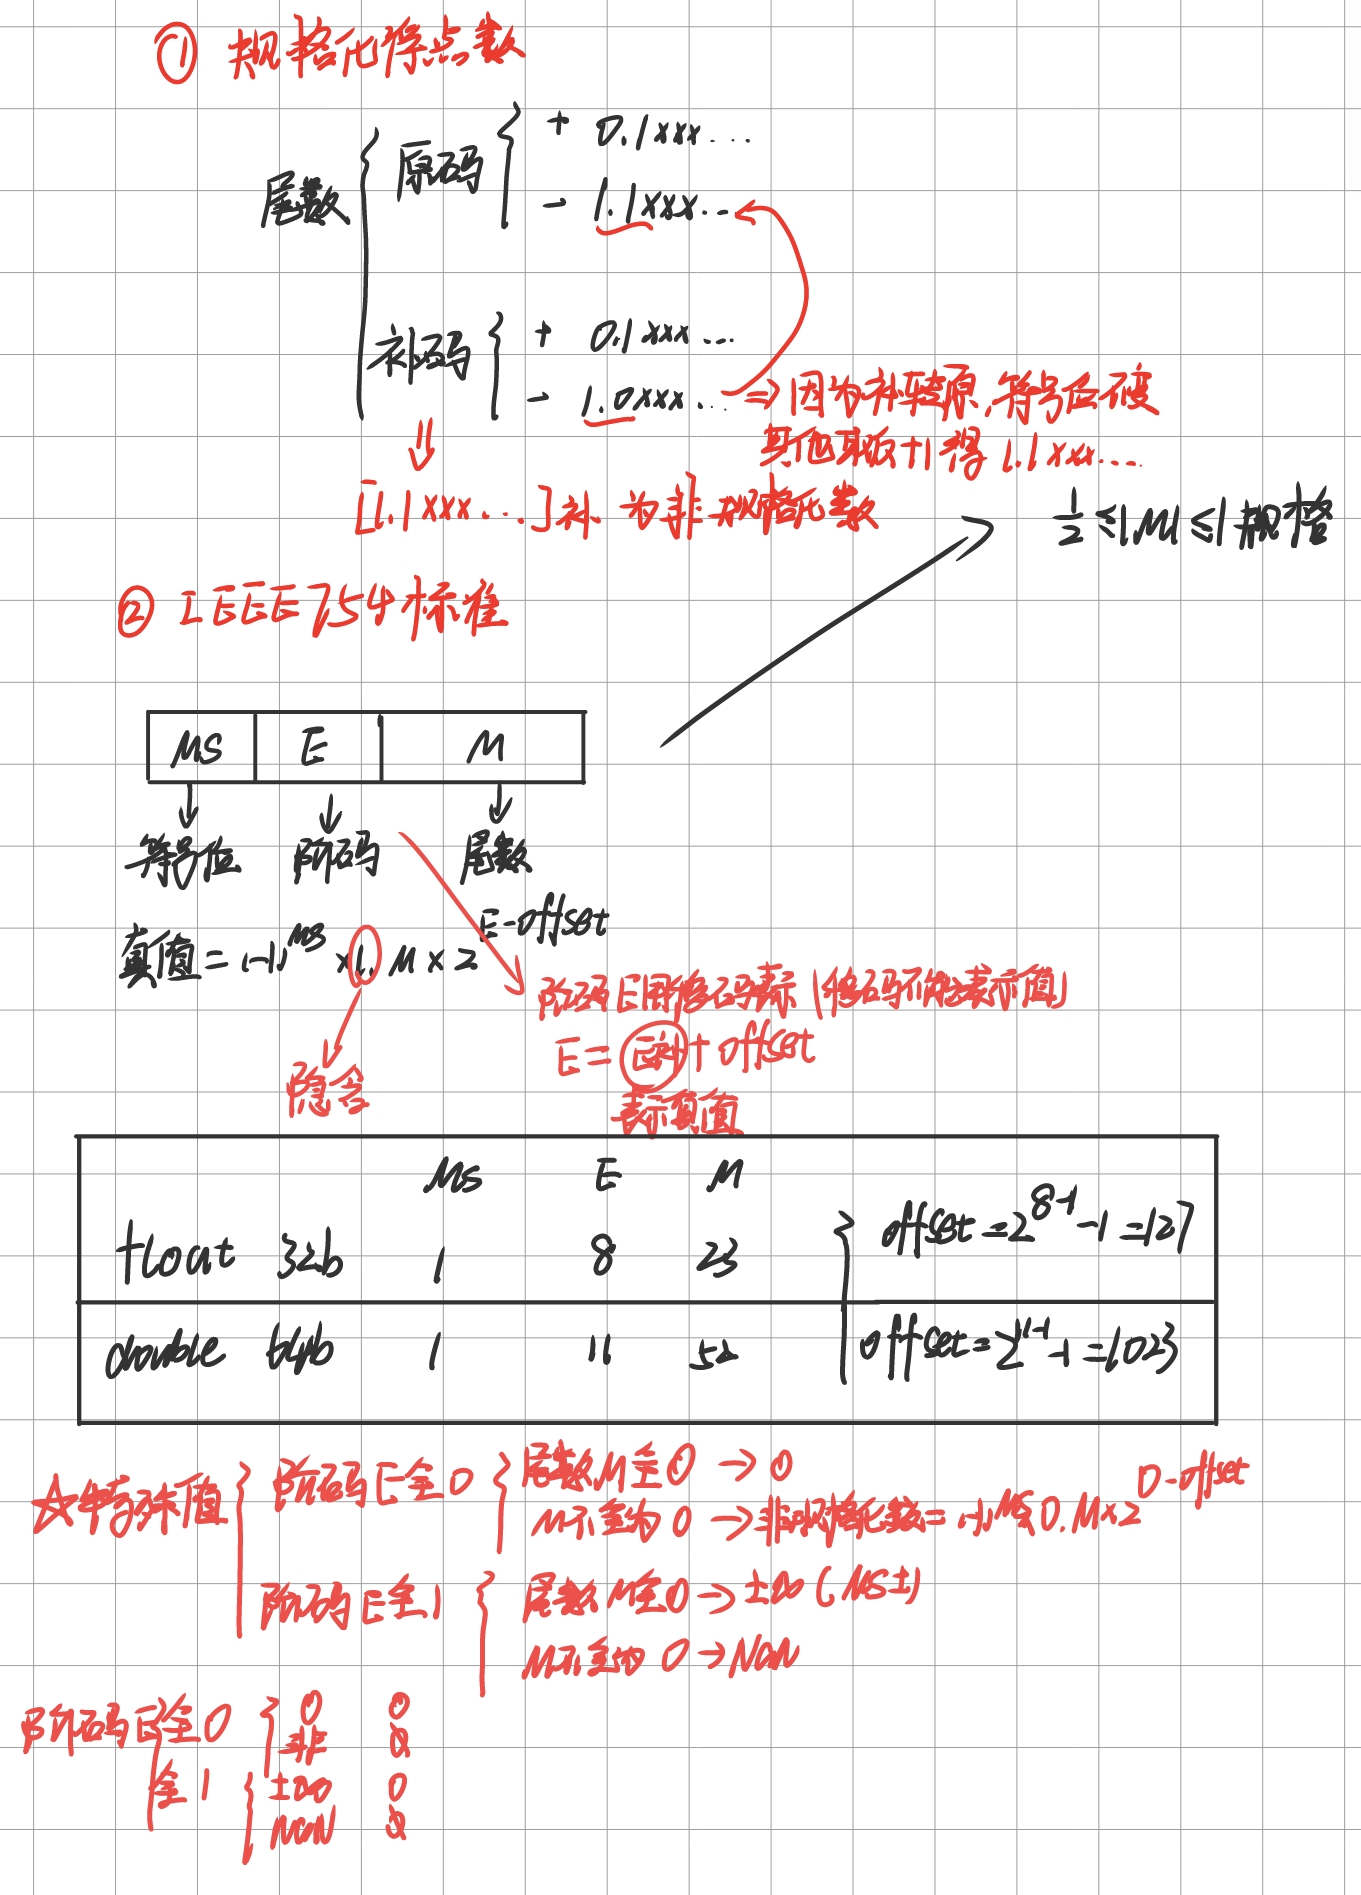 ① 规格化浮点数
尾数 原码 + 0.1xxx...
- 1.1xxx...
补码 + 0.1xxx...
- 1.0xxx... ⇒ 因为补转原,符号位不变
其他取反+1得 1.1xxx...
[1.1xxx...]补 为非规格化数
1/2 ≤|M| ≤1 规格
② IEEE754标准
MS E M
符号位 阶码 尾数
真值 = (-1)^MS × 1.M × 2^E-offset
隐含
阶码E用移码表示 (移码不能表示值)
E = E补 + offset
表示真值
Ms E M
float 32b 1 8 23 offset = 2^8-1 -1 = 127
double 64b 1 11 52 offset = 2^11-1 -1 = 1023
☆特殊值 阶码E全0 尾数M全0 → 0
M不全为0 → 非规格化数 = (-1)^MS × 0.M × 2^0-offset
阶码E全1 尾数M全0 → ±∞ (MS±)
M不全为0 → NaN
阶码E全0 0 0
非 0̸
全1 ±∞ 0
NaN 0̸